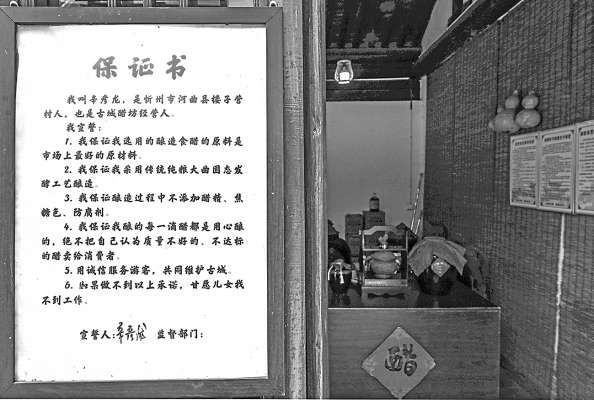 保证书
我叫辛彦龙，是忻州市河曲县楼子营
村人，也是古城醋坊经营人。
我宣誓：
1. 我保证我选用的酿造食醋的原料是
市场上最好的原材料。
2. 我保证我采用传统纯粮大曲固态发
酵工艺酿造。
3. 我保证酿造过程中不添加醋精、焦
糖色、防腐剂。
4. 我保证我酿的每一滴醋都是用心酿
的，绝不把自己认为质量不好的、不达标
的醋卖给消费者。
5. 用诚信服务游客，共同维护古城。
6. 如果做不到以上承诺，甘愿儿女找
不到工作。
宣誓人：辛彦龙 监督部门：
醋